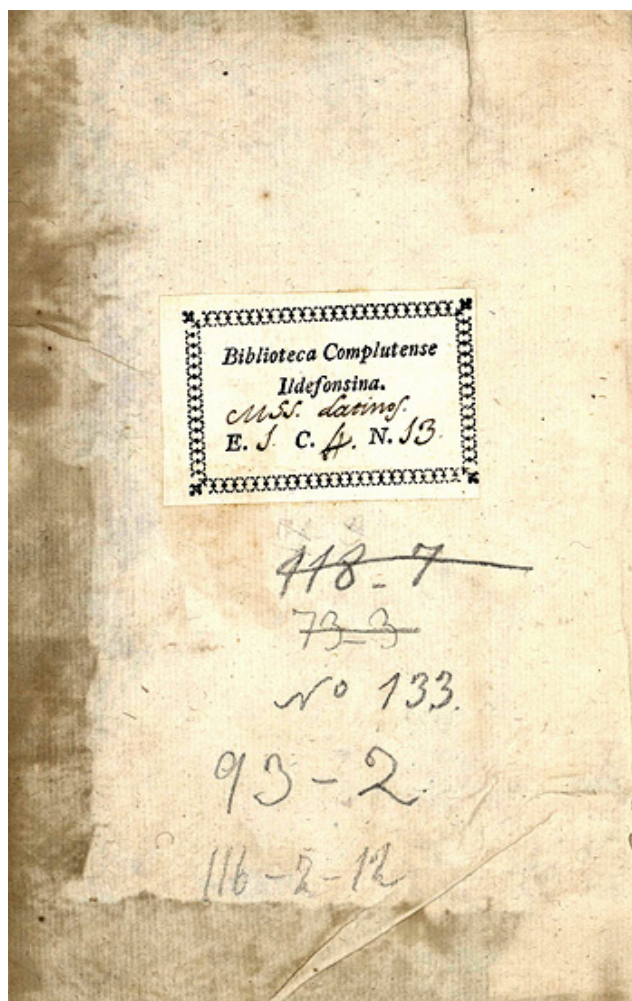 Biblioteca Complutense
Ildefonsina.
MSS. Latinos.
E. 1 C. 4. N. 13
118-7
73-3
Nº 133.
93-2
116-2-12